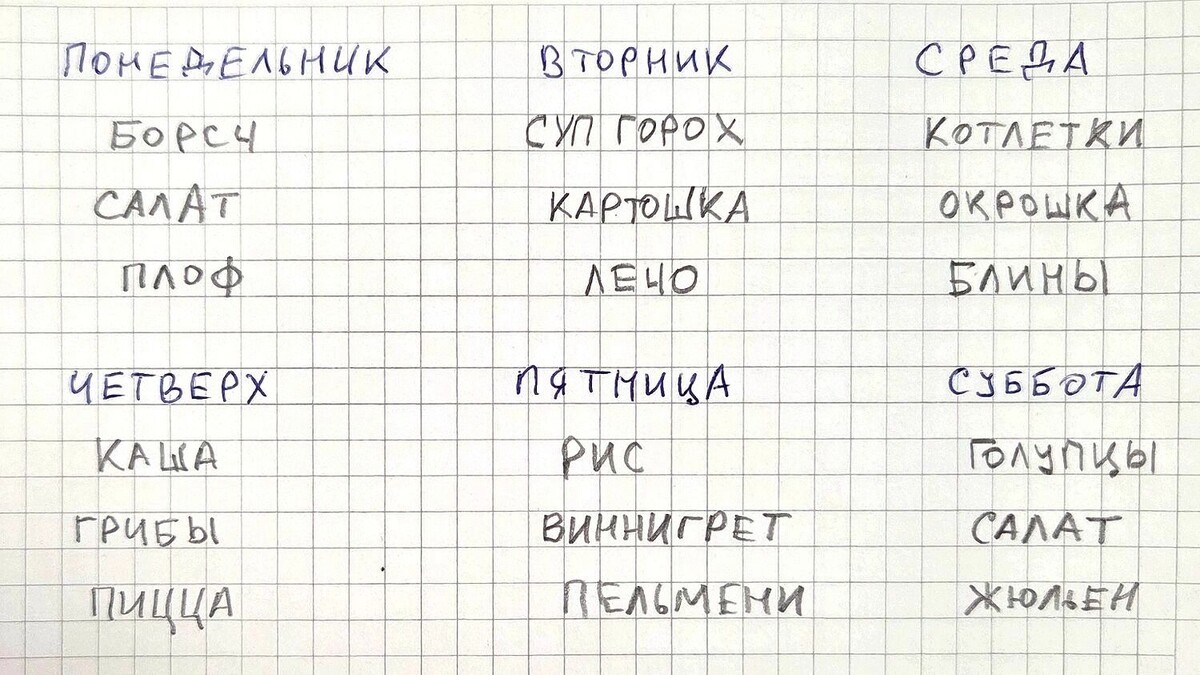 ПОНЕДЕЛЬНИК ВТОРНИК СРЕДА
БОРСЧ СУП ГОРОХ КОТЛЕТКИ
САЛАТ КАРТОШКА ОКРОШКА
ПЛОФ ЛЕЧО БЛИНЫ
ЧЕТВЕРХ ПЯТНИЦА СУББОТА
КАША РИС ГОЛУПЦЫ
ГРИБЫ ВИННИГРЕТ САЛАТ
ПИЦЦА ПЕЛЬМЕНИ ЖЮЛЬЕН